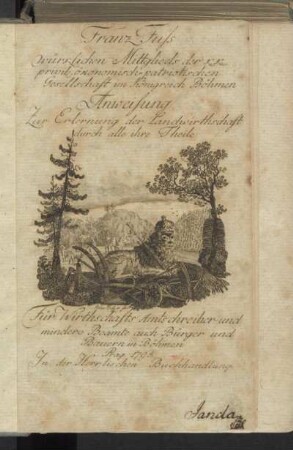 Franz Fuss
würklichen Mittglieds der k: k:
privil: ökonomisch-patriotischen
Gesellschaft im Königreich Böhmen
Anweisung
Zur Erlernung der Landwirthschaft
durch alle ihre Theile
Für Wirthschafts Amtschreiber und
mindere Beamte auch Bürger und
Bauern in Böhmen
Prag
In der Herrlischen Buchhandlung.
Janda